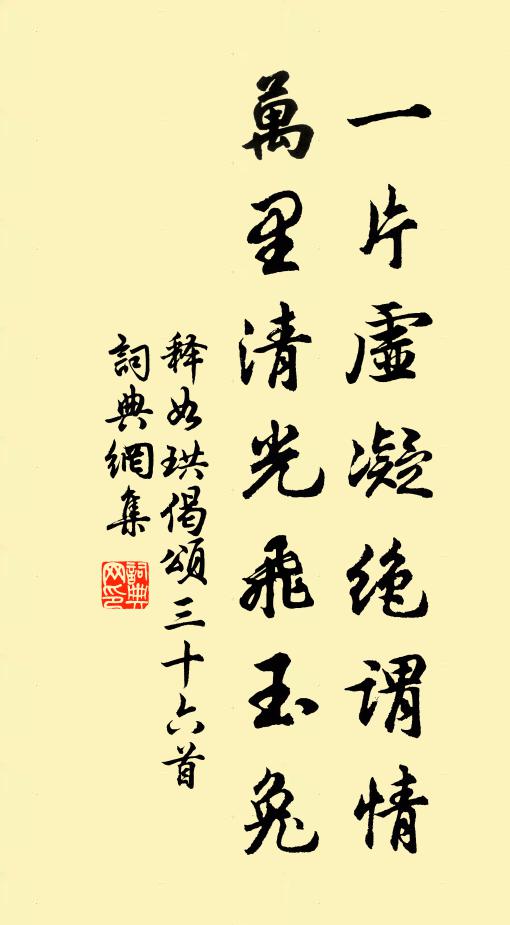 一片虛凝絶謂情
萬里清光飛玉兔
释如珙偈頌三十六首
詞典網集
詞典
网印